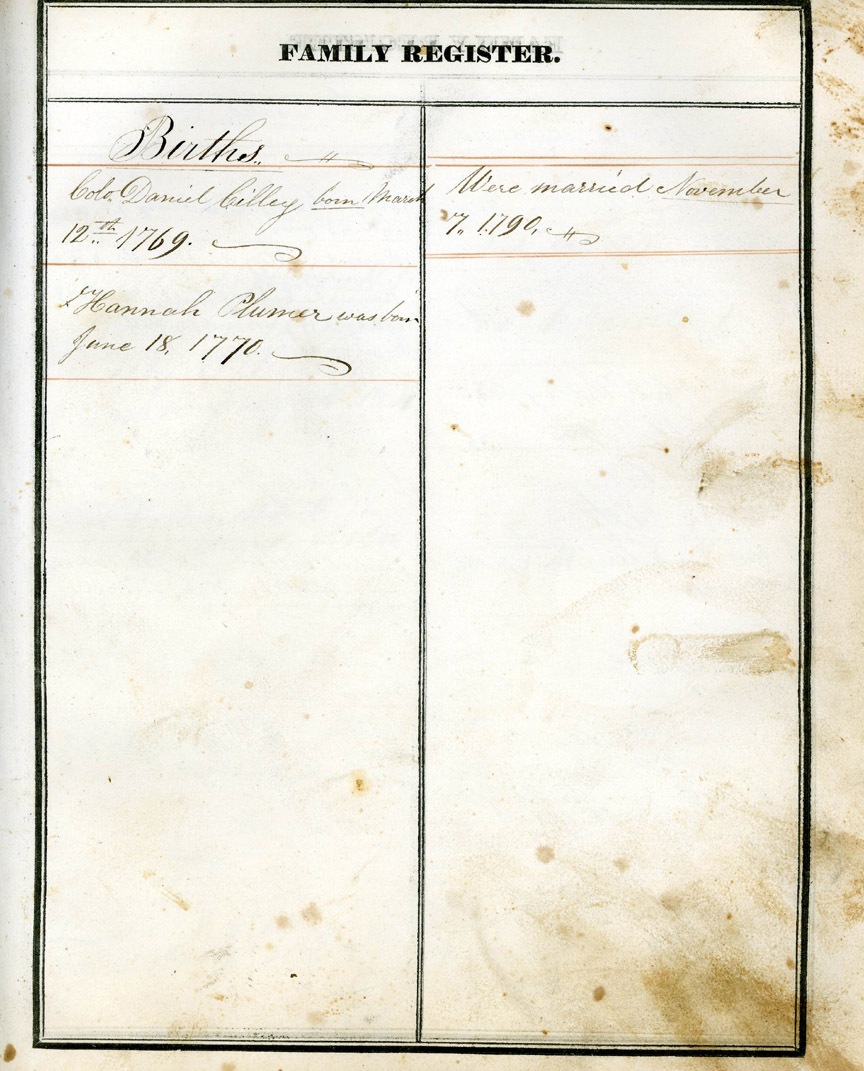 FAMILY REGISTER.
Births.
Colo. Daniel Cilley born March
12th 1769.
Hannah Plumer was born
June 18, 1770.
Were married November
7, 1790.